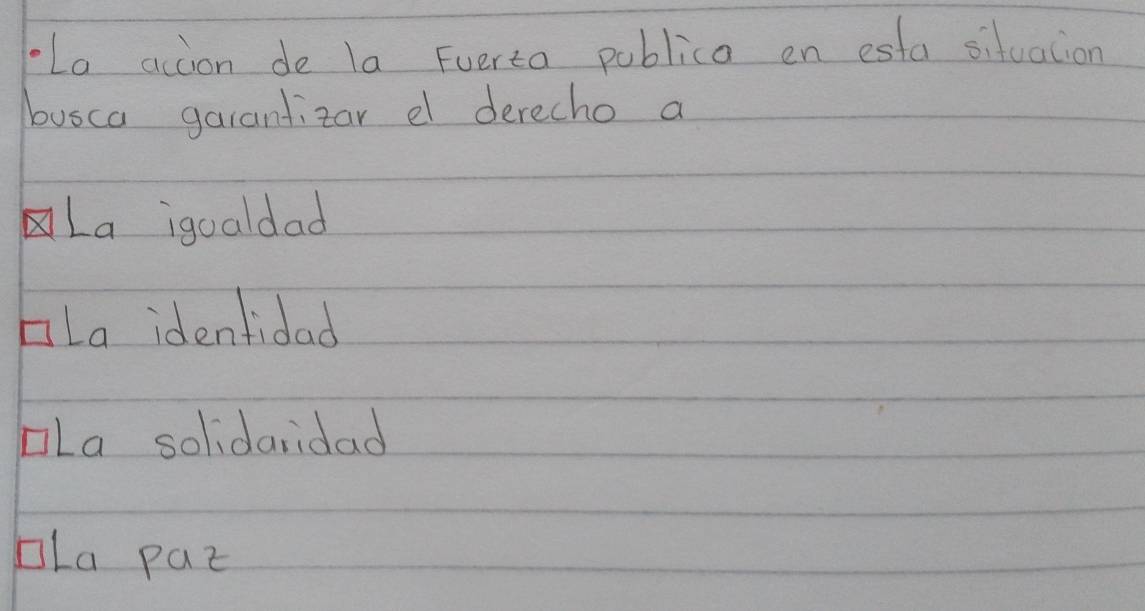 •La accion de la Fuerza publica en esta situacion
busca garantizar el derecho a
☒ La igualdad
☐ La identidad
☐ La solidaridad
☐ La paz